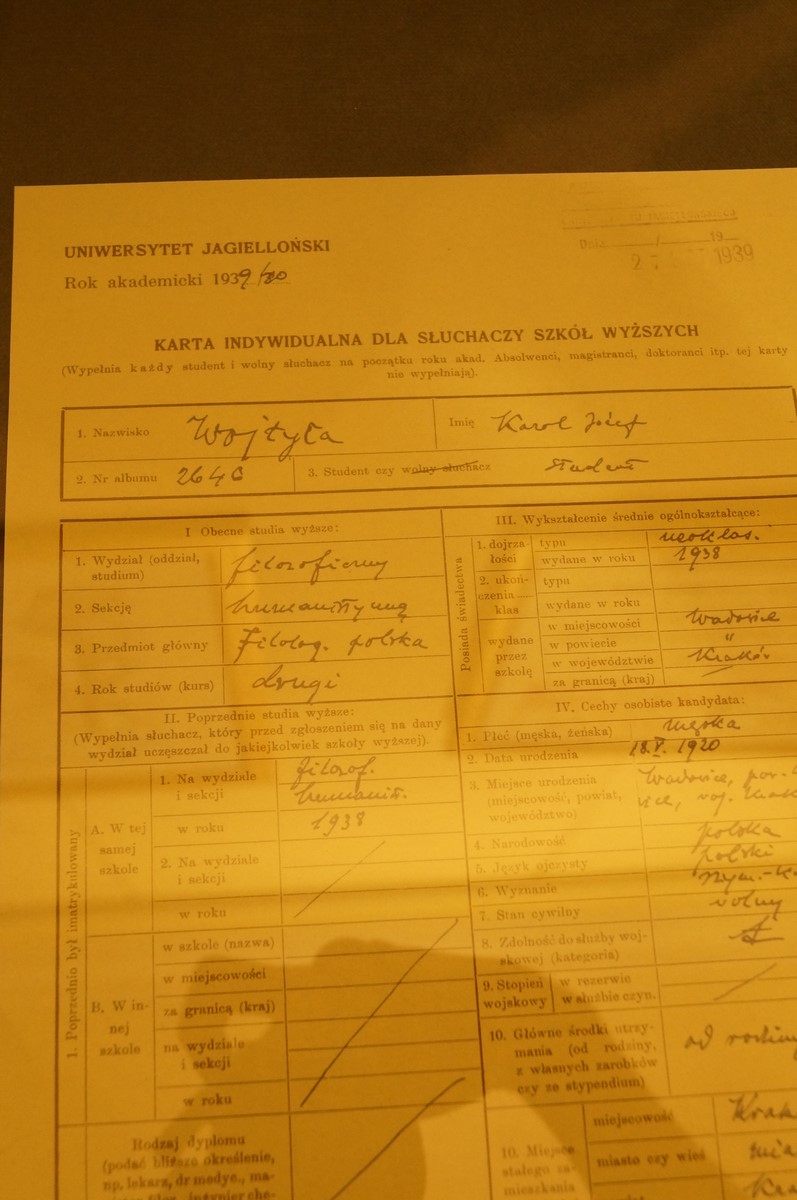 UNIWERSYTET JAGIELLOŃSKI
Rok akademicki 1939/
Dnia / 19
2 1939
KARTA INDYWIDUALNA DLA SŁUCHACZY SZKÓŁ WYŻSZYCH
(Wypełnia każdy student i wolny słuchacz na początku roku akad. Absolwenci, magistranci, doktoranci itp. tej karty
nie wypełniają).
1. Nazwisko Wojtyła
Imię Karol Józef
2. Nr albumu 2646
3. Student czy wolny słuchacz student
I Obecne studia wyższe:
1. Wydział (oddział, studium) filozoficzny
2. Sekcję humanistyczną
3. Przedmiot główny Filolog. polska
4. Rok studiów (kurs) drugi
II. Poprzednie studia wyższe:
(Wypełnia słuchacz, który przed zgłoszeniem się na dany
wydział uczęszczał do jakiejkolwiek szkoły wyższej).
1. Poprzednio był imatrykulowany
A. W tej
samej
szkole
1. Na wydziale Filozof.
i sekcji humanist.
w roku 1938
2. Na wydziale
i sekcji
w roku
B. W in-
nej
szkole
w szkole (nazwa)
w miejscowości
za granicą (kraj)
na wydziale
i sekcji
w roku
Rodzaj dyplomu
(podać bliższe określenie,
np. lekarz, dr medyc., ma-
III. Wykształcenie średnie ogólnokształcące:
Posiada świadectwa
1. dojrza-
łości
typu neoklas.
wydane w roku 1938
2. ukoń-
czenia
klas
typu
wydane w roku
wydane
przez
szkołę
w miejscowości Wadowice
w powiecie "
w województwie Kraków
za granicą (kraj)
IV. Cechy osobiste kandydata:
1. Płeć (męska, żeńska) męska
2. Data urodzenia 18.V. 1920
3. Miejsce urodzenia Wadowice, pow.
(miejscowość, powiat,
województwo)
4. Narodowość polska
5. Język ojczysty polski
6. Wyznanie rzym.-k
7. Stan cywilny wolny
8. Zdolność do służby woj-
skowej (kategoria)
9. Stopień
wojskowy
w rezerwie
w służbie czyn.
10. Główne środki utrzy-
mania (od rodziny, od rodziny
z własnych zarobków
czy ze stypendium)
10. Miejsce
stałego za-
mieszkania
miejscowość Krak
miasto czy wieś mia